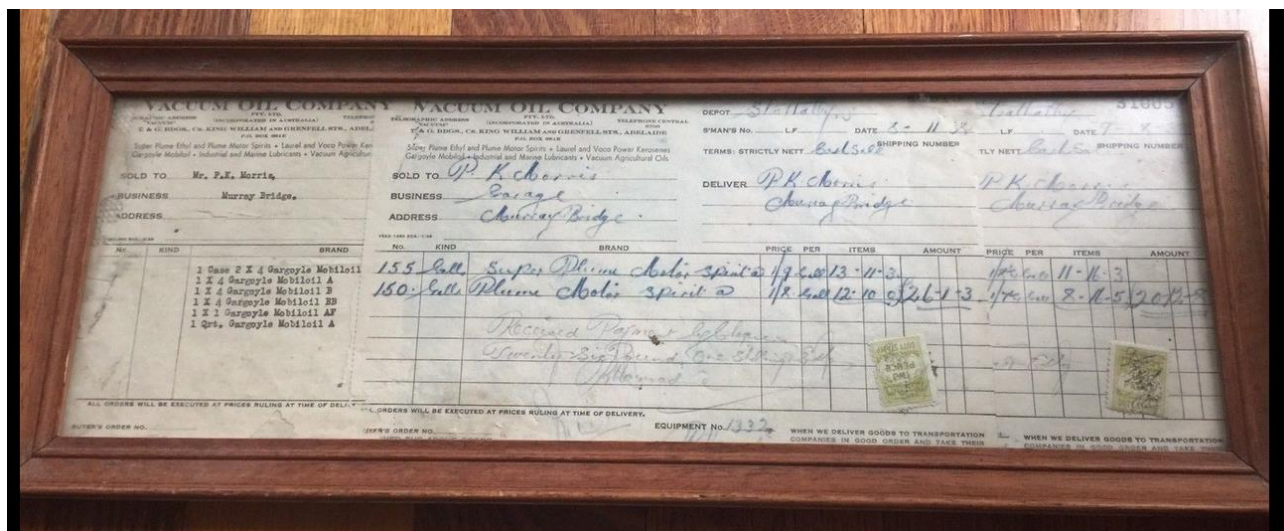 VACUUM OIL COMPANY
PTY. LTD.
(INCORPORATED IN AUSTRALIA)
T & G. BDGS, Cr. KING WILLIAM AND GRENFELL STS., ADEL
Super Plume Ethyl and Plume Motor Spirits • Laurel and Voco Power Ker
Gargoyle Mobiloil • Industrial and Marine Lubricants • Vacuum Agricultur
SOLD TO Mr. P.K. Morris,
BUSINESS Murray Bridge.
ADDRESS
No. KIND BRAND
1 Case 2 X 4 Gargoyle Mobiloil
1 X 4 Gargoyle Mobiloil A
1 X 4 Gargoyle Mobiloil B
1 X 4 Gargoyle Mobiloil BB
1 X 1 Gargoyle Mobiloil AF
1 Qrt. Gargoyle Mobiloil A
ALL ORDERS WILL BE EXECUTED AT PRICES RULING AT TIME OF DEL
BUYER'S ORDER NO.
VACUUM OIL COMPANY
PTY. LTD.
TELEGRAPHIC ADDRESS (INCORPORATED IN AUSTRALIA) TELEPHONE CENTRAL
"VACUUM"
T & G. BDGS., Cr. KING WILLIAM AND GRENFELL STS., ADELAIDE
P.O. BOX
Super Plume Ethyl and Plume Motor Spirits • Laurel and Voco Power Kerosenes
Gargoyle Mobiloil • Industrial and Marine Lubricants • Vacuum Agricultural Oils
SOLD TO P. K Morris
BUSINESS Garage
ADDRESS Murray Bridge.
DEPOT
S'MAN'S No. L.F. DATE 8-11-38
TERMS: STRICTLY NETT Cash Sale SHIPPING NUMBER
DELIVER P. K. Morris
Murray Bridge
No. KIND BRAND PRICE PER ITEMS AMOUNT
155 Galls Super Plume Motor Spirit @ 1/9 Gall 13-11-3
150 Galls Plume Motor Spirit @ 1/8 Gall 12-10-0 26-1-3
Received Payment
Twenty Six Pound One Shilling & 3d
TWO PENCE
ALL ORDERS WILL BE EXECUTED AT PRICES RULING AT TIME OF DELIVERY.
BUYER'S ORDER NO. EQUIPMENT No. 1332
WHEN WE DELIVER GOODS TO TRANSPORTATION
COMPANIES IN GOOD ORDER AND TAKE THEIR
31005
L.F. DATE
TLY NETT Cash SHIPPING NUMBER
P. K. Morris
Murray Bridge
PRICE PER ITEMS AMOUNT
Galls 11-16-3
Galls 8-16-5
WHEN WE DELIVER GOODS TO TRANSPORTATION
COMPANIES IN GOOD ORDER AND TAKE THEIR